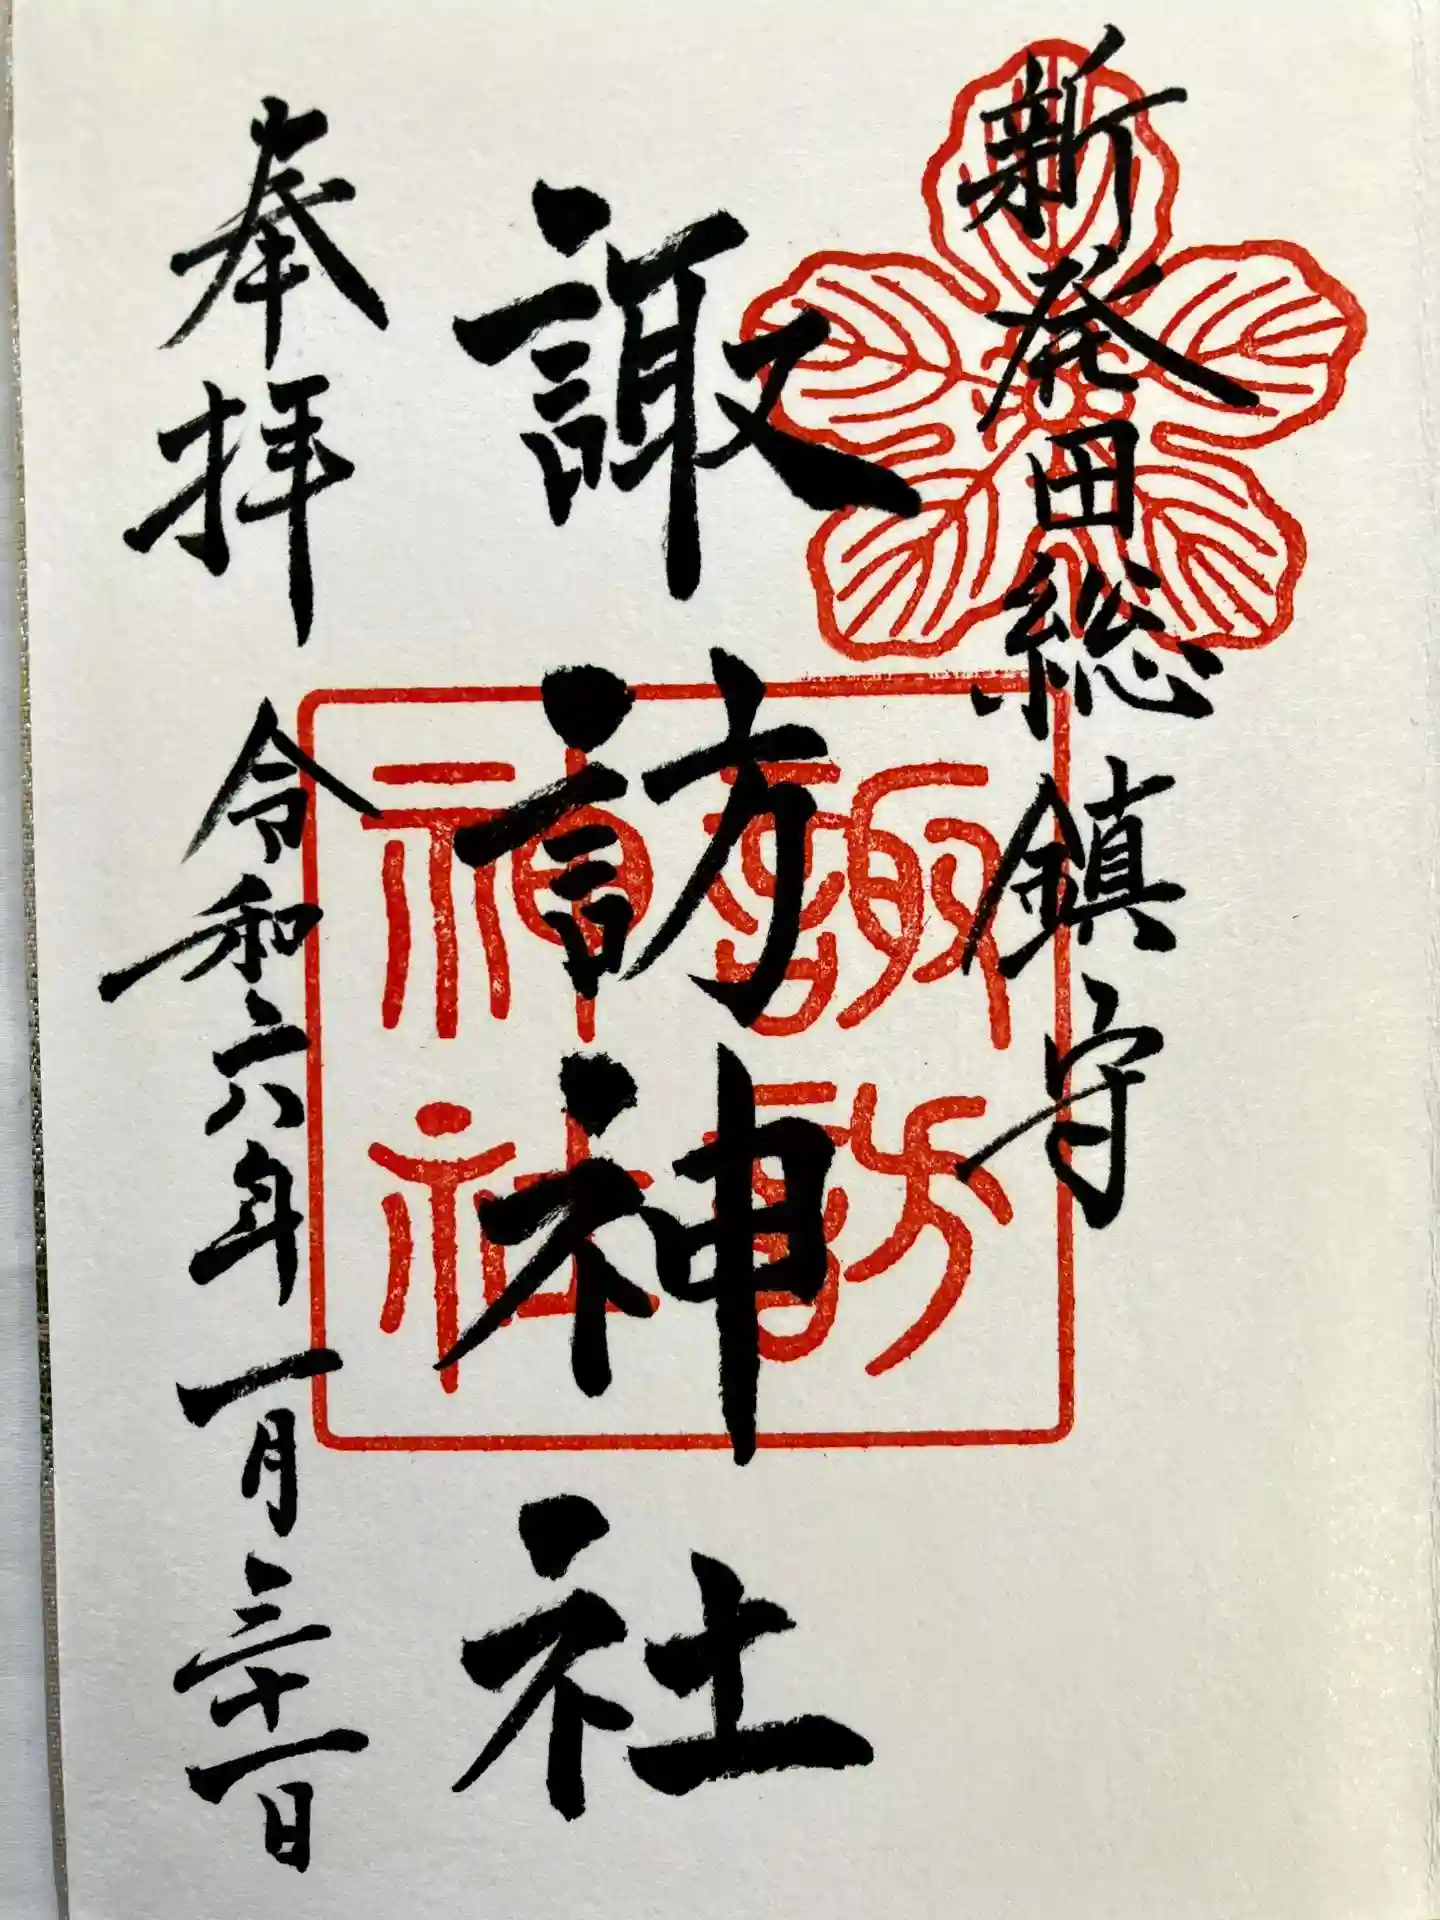 新発田総鎮守
諏訪神社
諏訪
神社
奉拝 令和六年一月三十一日